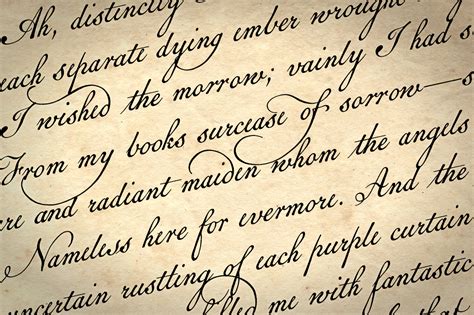 Ah, distinctly
each separate dying ember wrought
I wished the morrow; vainly I had s
From my books surcease of sorrow—s
re and radiant maiden whom the angels
Nameless here for evermore. And the
uncertain rustling of each purple curtain
lled me with fantastic
that